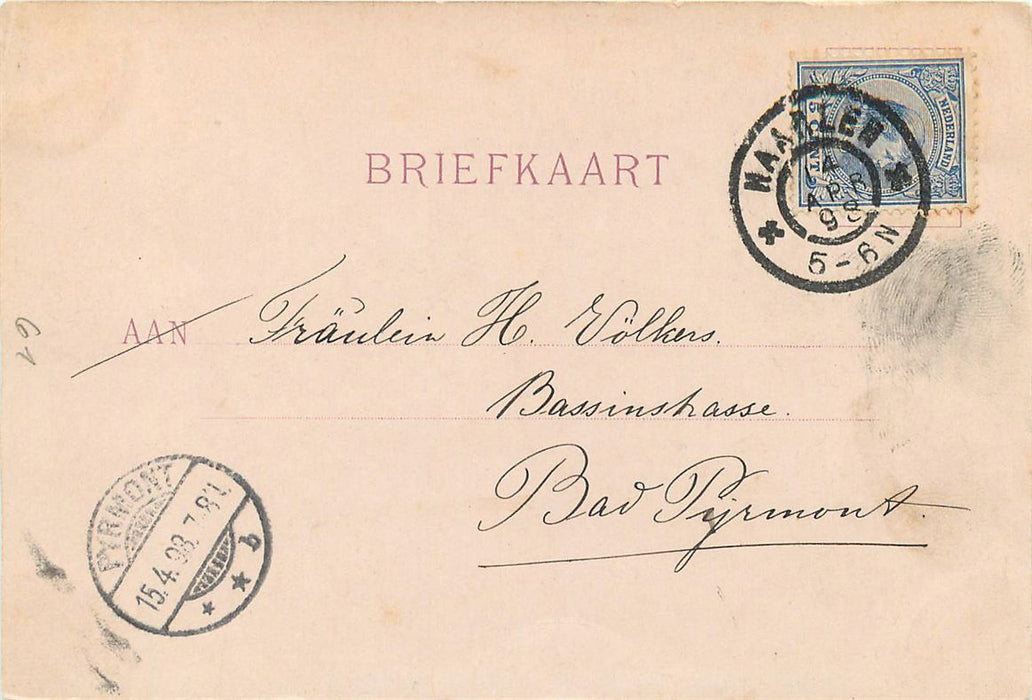 BRIEFKAART
NEDERLAND
5 CENT
HAARLEM
14
APR
98
5-6N
AAN Fräulein H. Völkers.
Bassinstrasse.
Bad Pyrmont.
61
PYRMONT
15.4.98.7-8V.